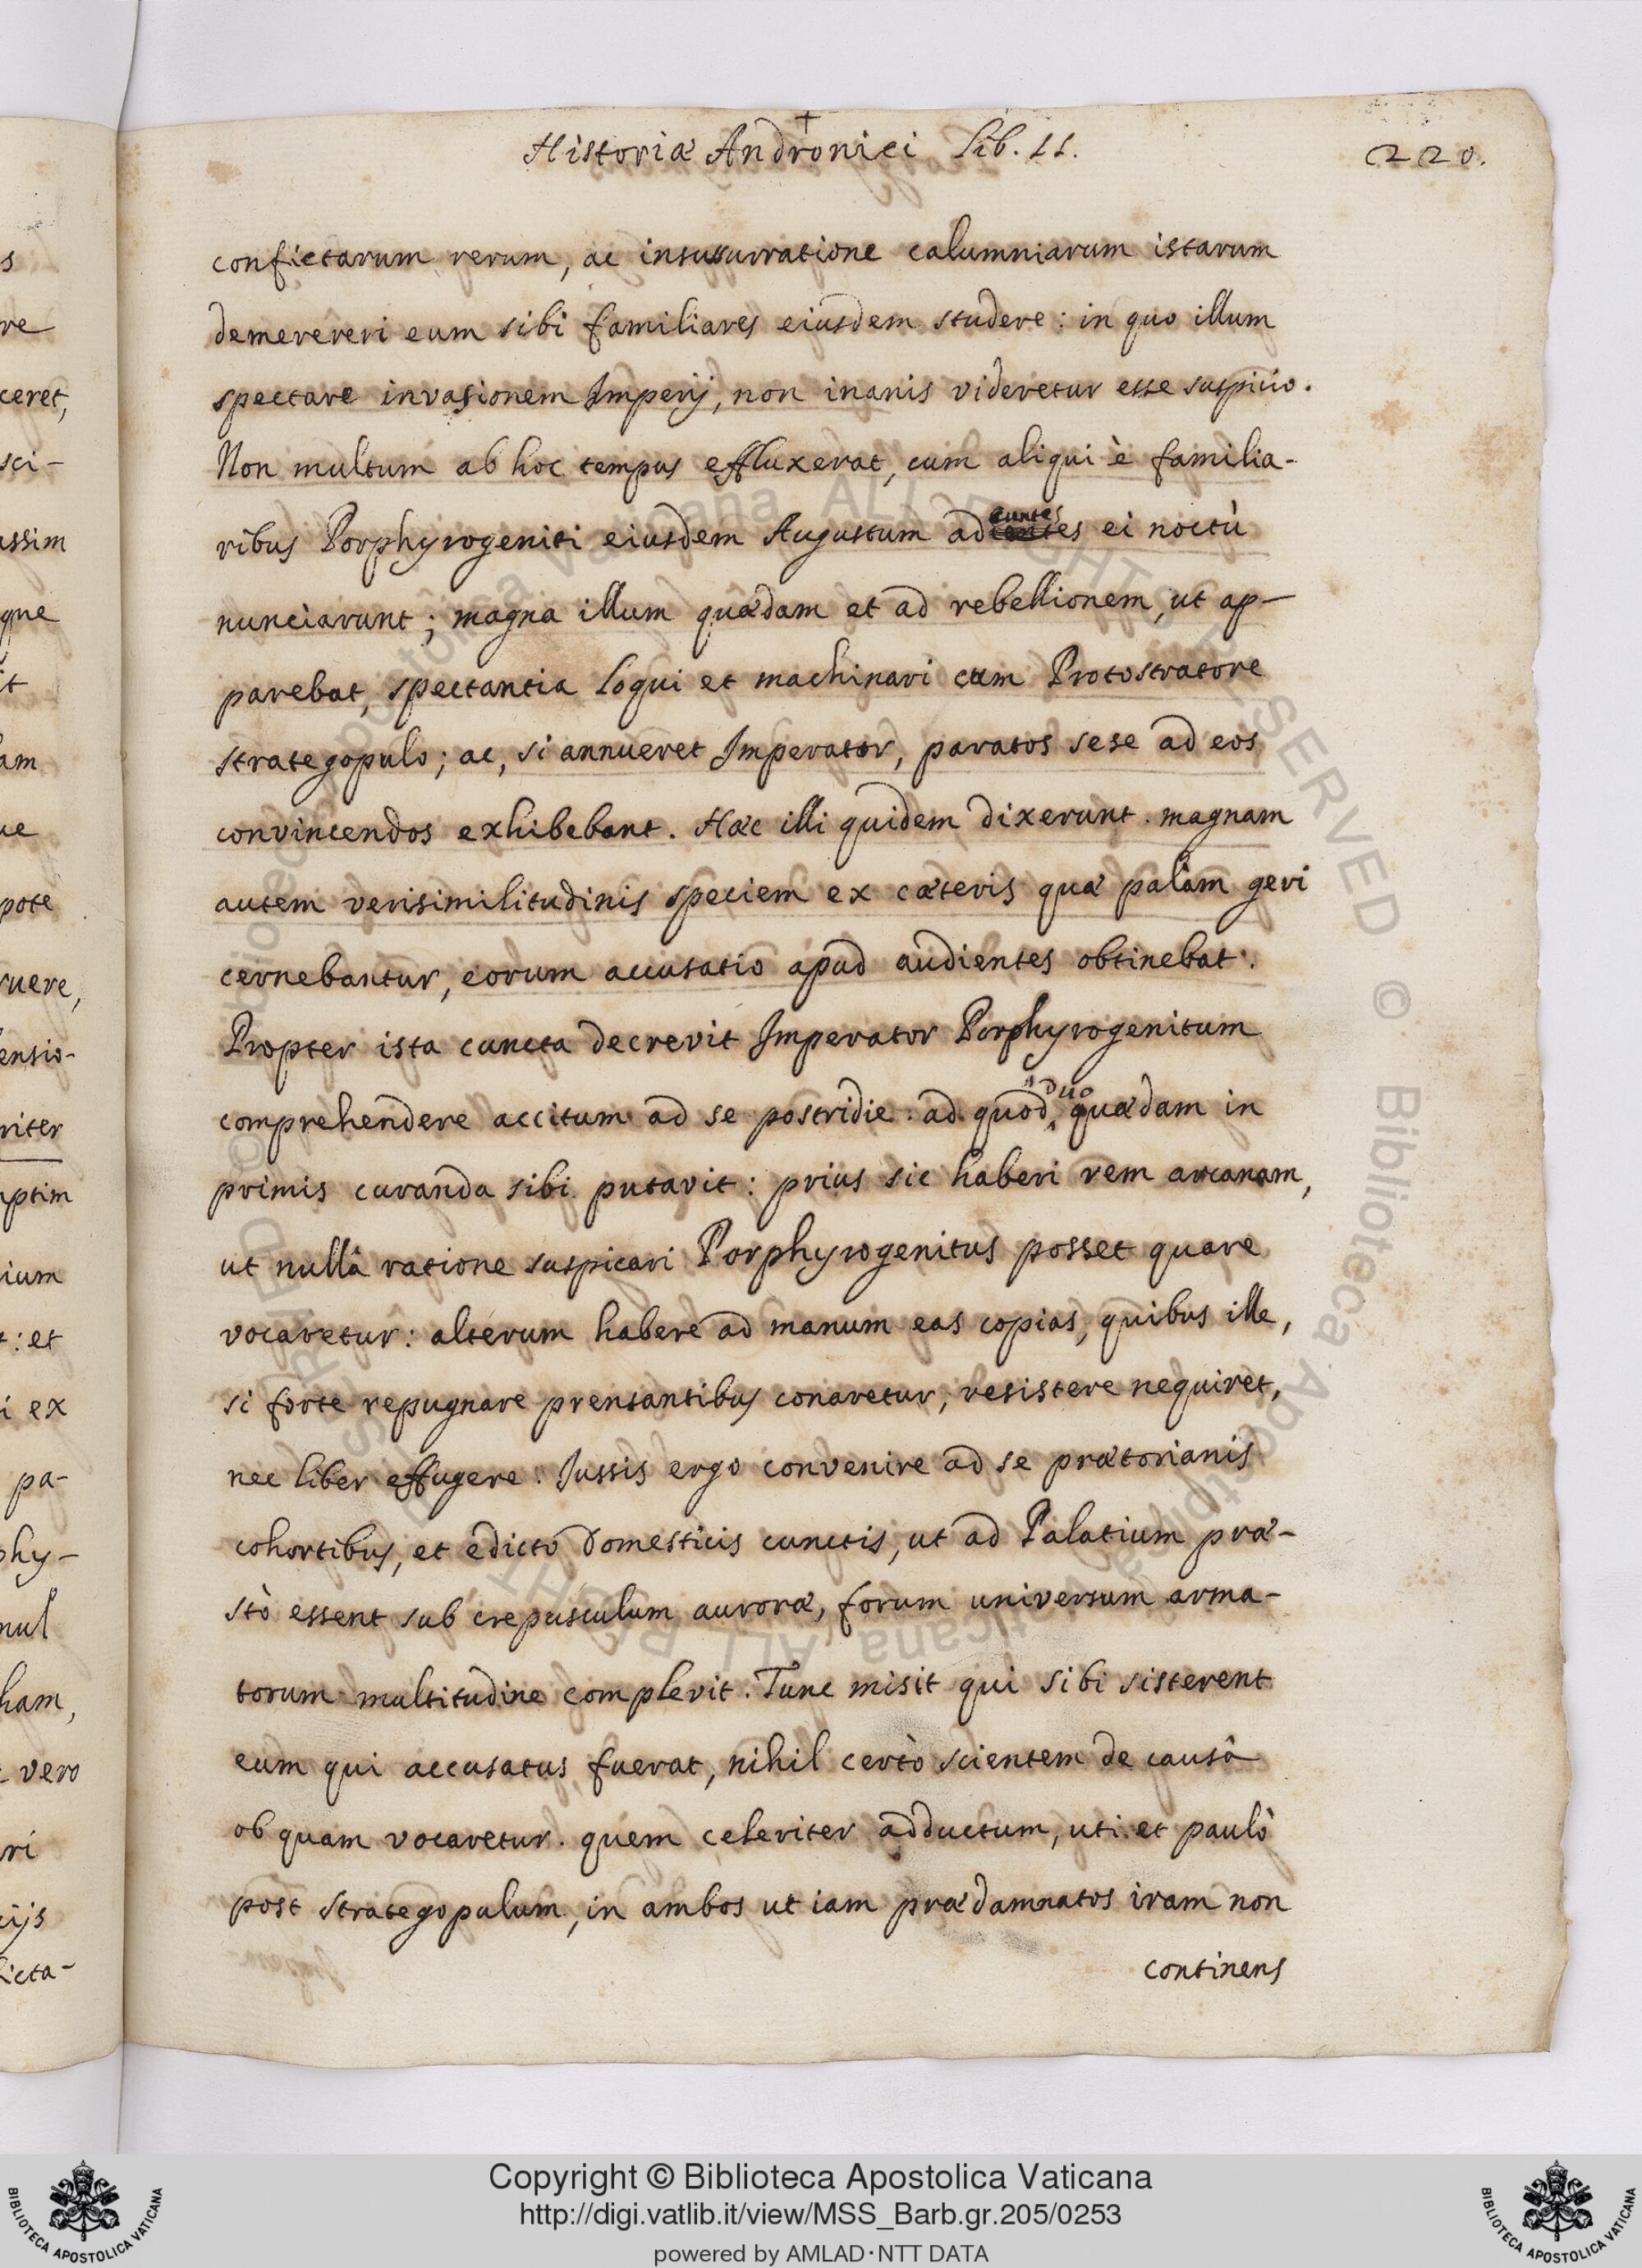 Historiæ Andronici Lib. II.
220.
confictarum rerum, ac insusurratione calumniarum istarum
demereréri eum sibi familiares eiusdem studere: in quo illum
spectare invasionem Imperij, non inanis videretur esse suspicio.
Non multum ab hoc tempus effluxerat, cum aliqui è familia-
ribus Porphyrogeniti eiusdem Augustum adeuntes ei noctù
nunciarunt; magna illum quædam et ad rebellionem, ut ap-
parebat, spectantia loqui et machinari cum Protostratore
strategopulo; ac, si annueret Imperator, paratos sese ad eos
convincendos exhibebant. Hæc illi quidem dixerunt. magnam
autem verisimilitudinis speciem ex cæteris quæ palàm geri
cernebantur, eorum accusatio apud audientes obtinebat.
Propter ista cuncta decrevit Imperator Porphyrogenitum
comprehendere accitum ad se postridie: ad quod duo quædam in
primis curanda sibi putavit: prius sic haberi rem arcanam,
ut nullâ ratione suspicari Porphyrogenitus posset quare
vocaretur: alterum habere ad manum eas copias, quibus ille,
si forte repugnare prensantibus conaretur, resistere nequiret,
nec liber effugere. Jussis ergo convenire ad se prætorianis
cohortibus, et edicto Domesticis cunctis, ut ad Palatium præ-
stò essent sub crepusculum auroræ, forum universum arma-
torum multitudine complevit. Tunc misit qui sibi sisterent
eum qui accusatus fuerat, nihil certò scientem de causâ
ob quam vocaretur. quem celeriter adductum, uti et paulò
post strategopulum, in ambos ut iam prædamnatos iram non
continens
s
re
ceret,
sci-
assim
que
it
am
ue
pote
ruere,
ensio-
riter
ptim
ium
: et
i ex
pa-
phy-
nul
ham,
vero
ri
ijs
icta-
Copyright © Biblioteca Apostolica Vaticana
http://digi.vatlib.it/view/MSS_Barb.gr.205/0253
powered by AMLAD·NTT DATA
BIBLIOTECA APOSTOLICA VATICANA
BIBLIOTECA APOSTOLICA VATICANA